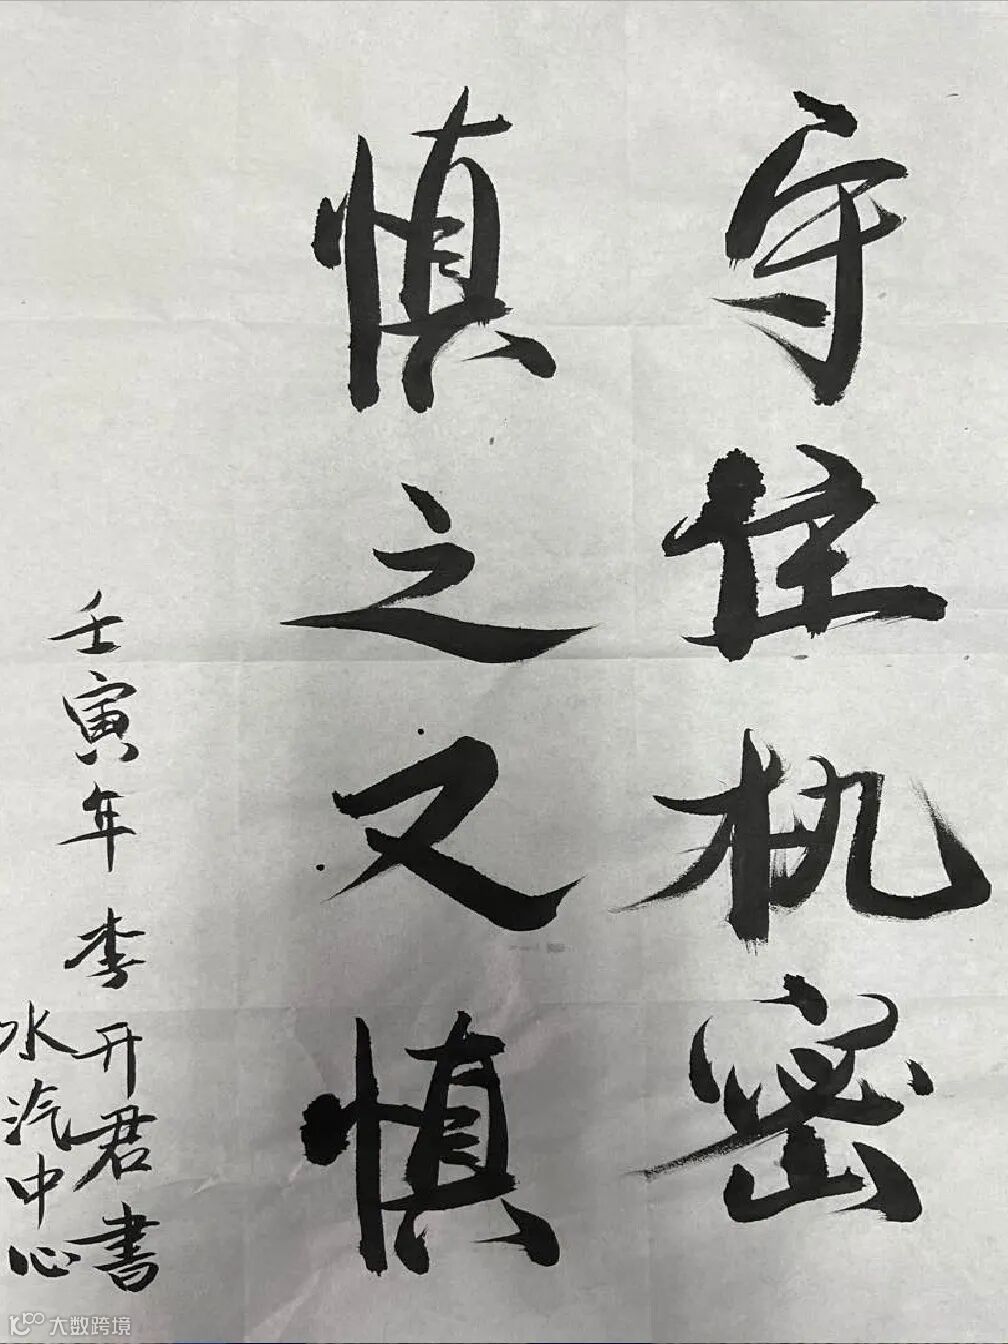 守住机密
慎之又慎
壬寅年 李开君書
水汽中心
大数跨境